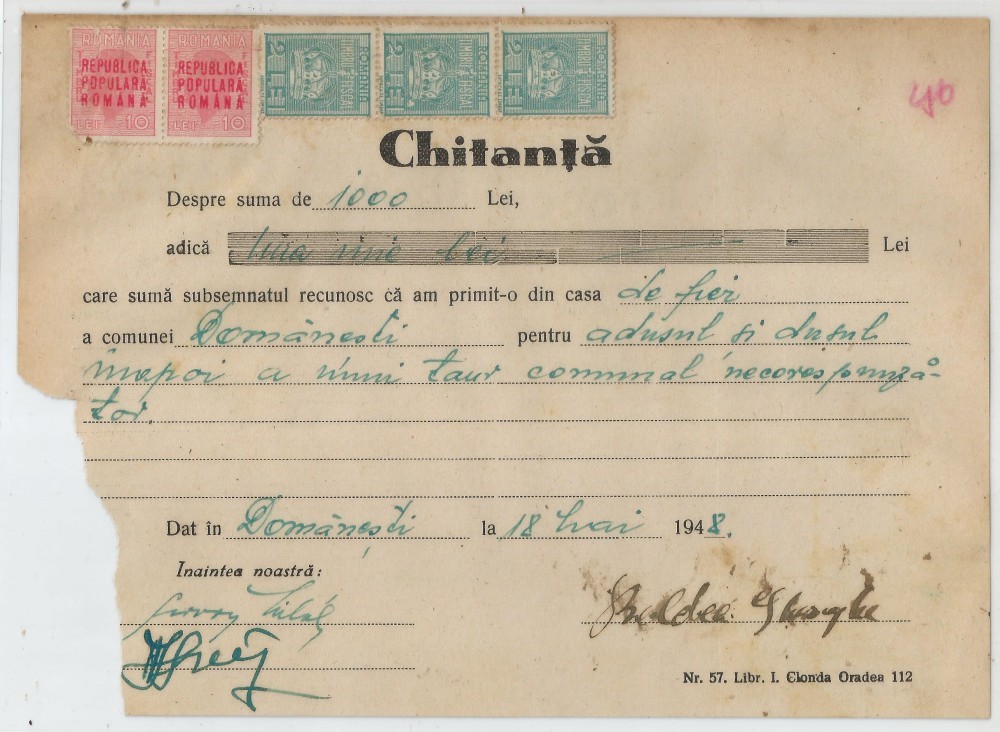 ROMANIA ROMANIA
REPUBLICA REPUBLICA
POPULARĂ POPULARĂ
ROMÂNĂ ROMÂNĂ
LEI 10 LEI 10
ROMANIA TIMBRU FISCAL 2 LEI
ROMANIA TIMBRU FISCAL 2 LEI
ROMANIA TIMBRU FISCAL 2 LEI
40
Chitanță
Despre suma de 1000 Lei,
adică una mie lei Lei
care sumă subsemnatul recunosc că am primit-o din casa de fier
a comunei Domănești pentru adusul si dusul
înapoi a unui taur comunal necorespunză-
tor.
Dat în Domănești la 18 Mai 1948.
Inaintea noastră:
Buldea Gheorghe
Nr. 57. Libr. I. Clonda Oradea 112